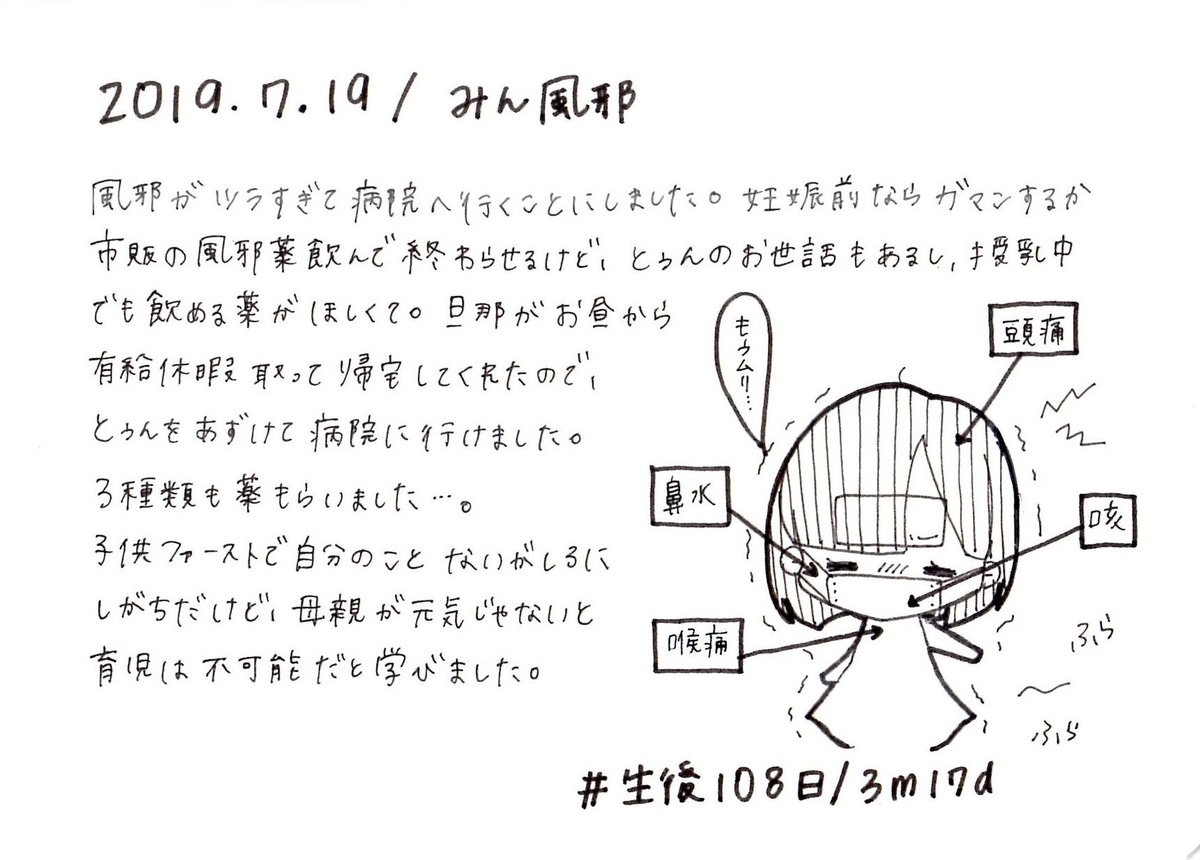 2019.7.19/みん風邪
風邪がツラすぎて病院へ行くことにしました。妊娠前ならガマンするか
市販の風邪薬飲んで終わらせるけど、とぅんのお世話もあるし、授乳中
でも飲める薬がほしくて。旦那がお昼から
有給休暇取って帰宅してくれたので、
とぅんをあずけて病院に行けました。
3種類も薬もらいました…。
子供ファーストで自分のことないがしろに
しがちだけど、母親が元気じゃないと
育児は不可能だと学びました。
もぅムリ…
頭痛
鼻水
咳
喉痛
ふら
ふら
#生後108日/3m17d